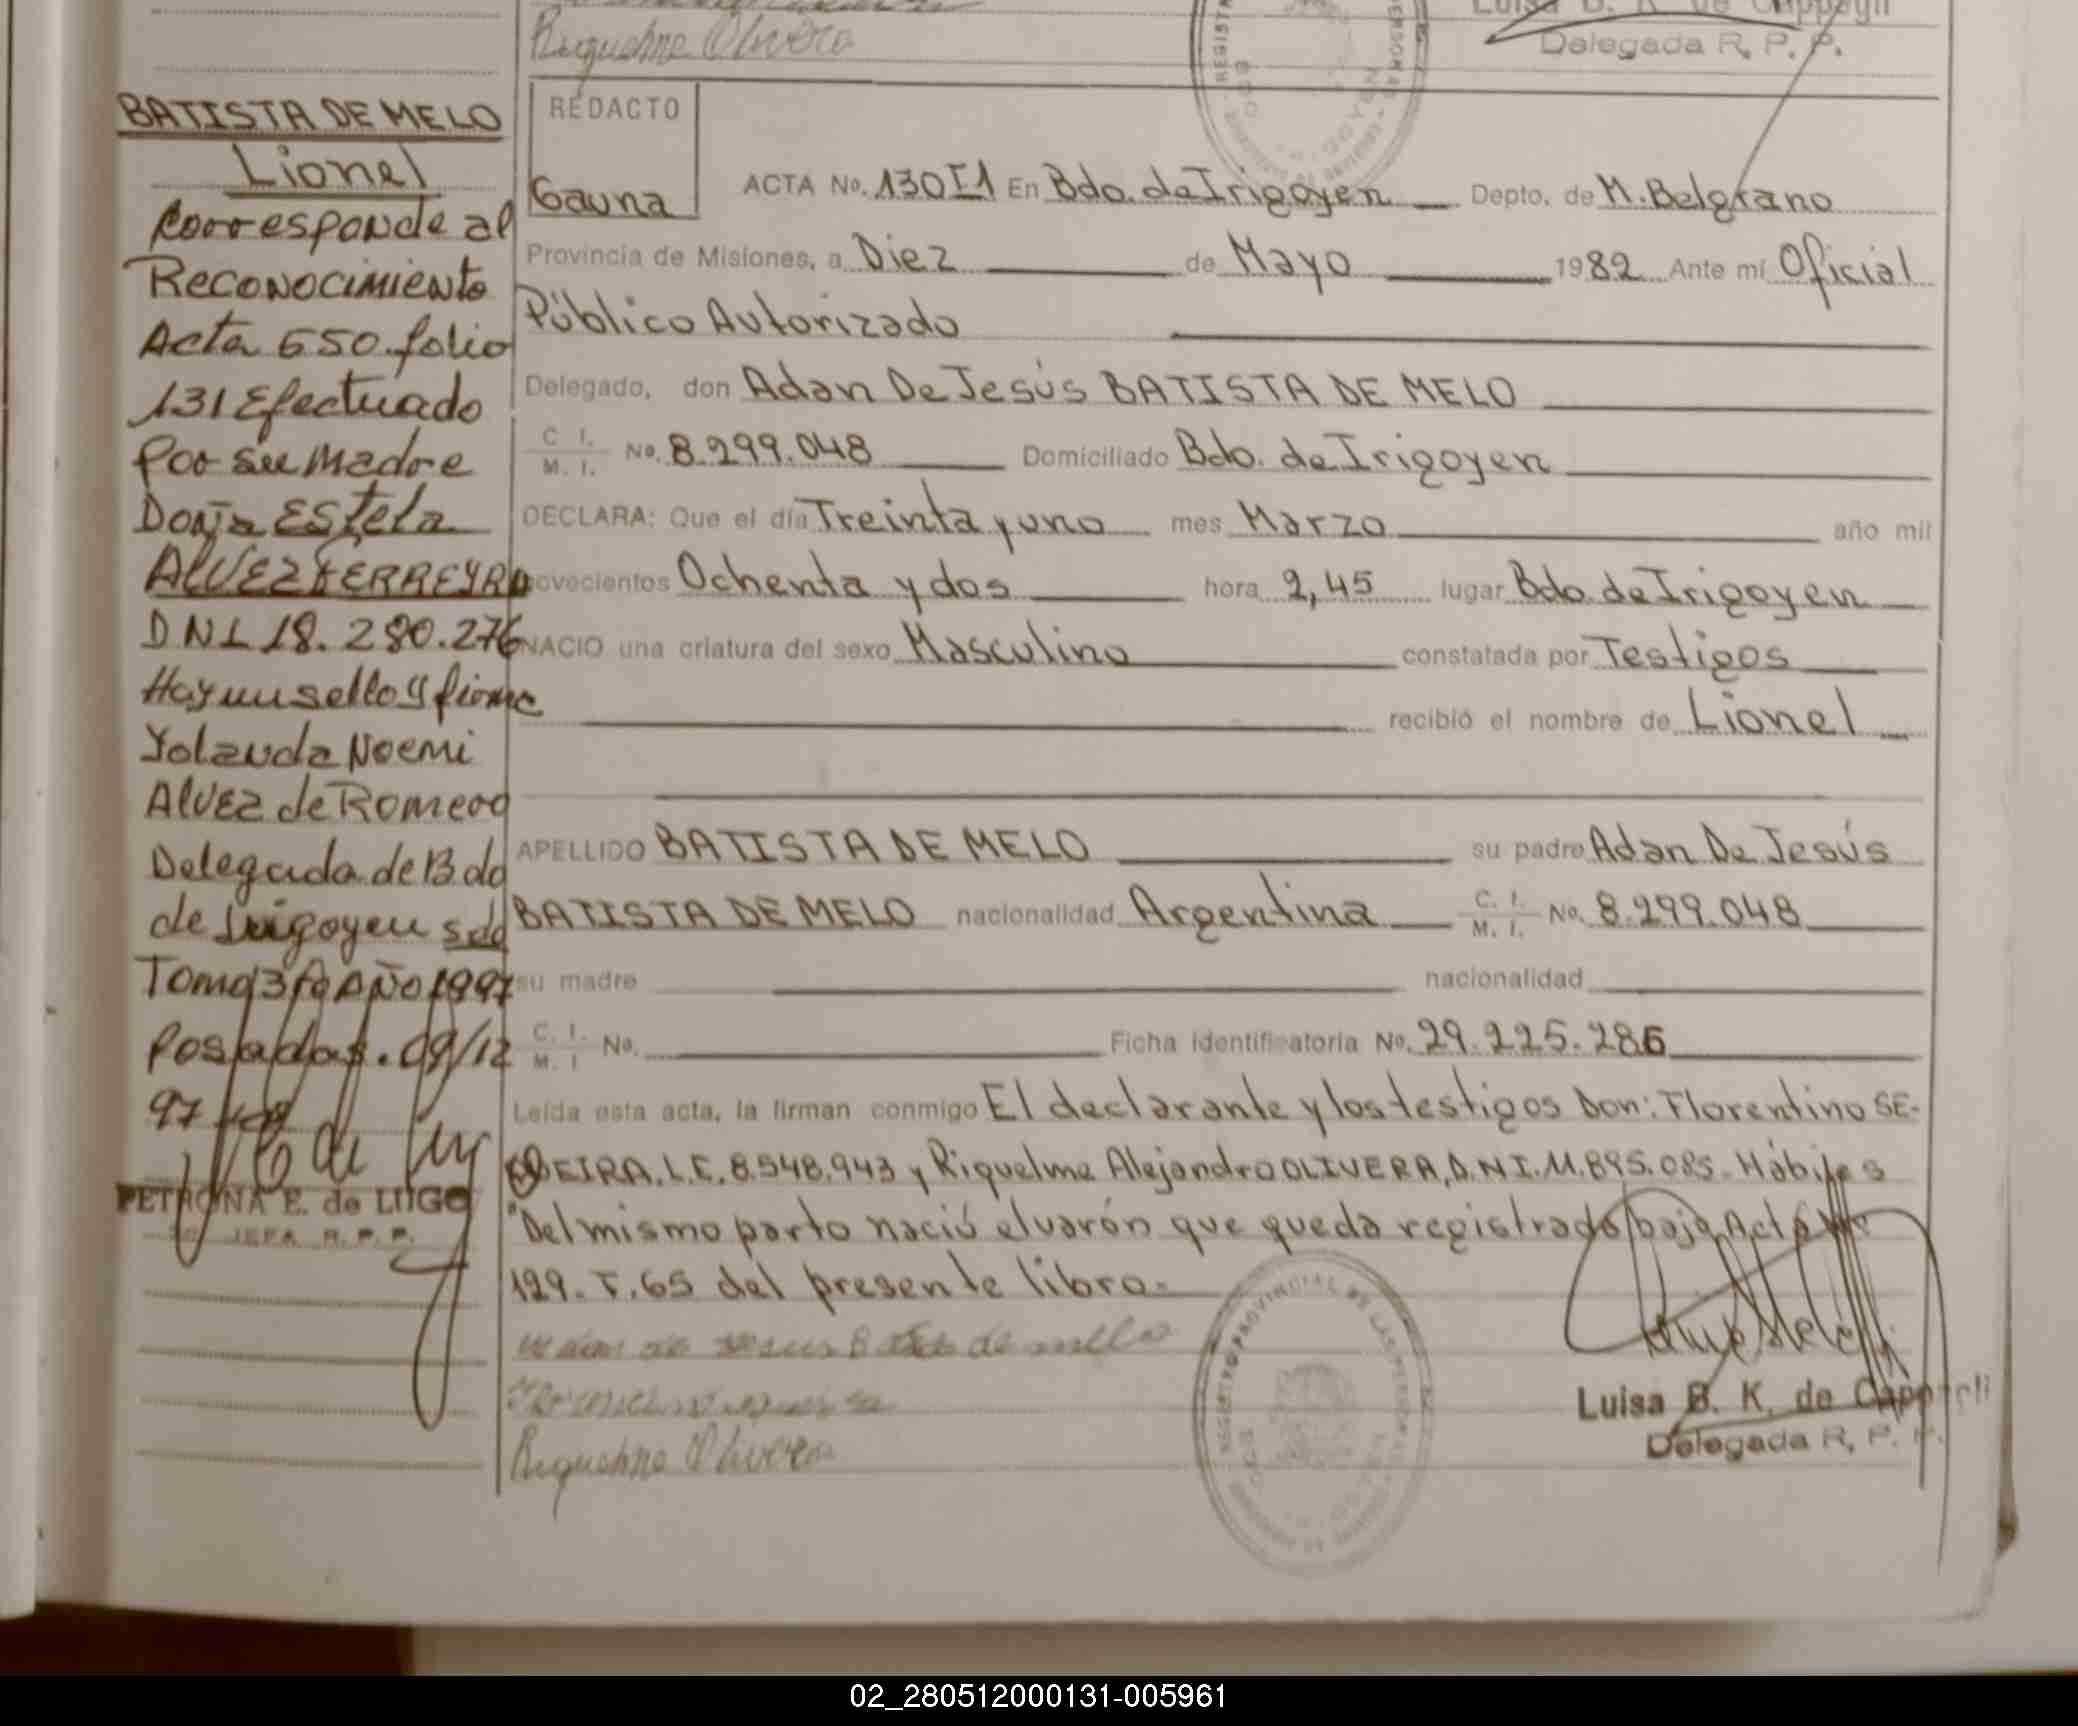 Riquelme Olivera
Delegada R. P. P.
BATISTA DE MELO
Lionel
Corresponde al
Reconocimiento
Acta 650 folio
131 Efectuado
Por su Madre
Doña EStela
ALVEZ FERREYRA
DNI 18.280.276
Hay un sello y firma
Yolanda Noemi
Alvez de Romero
Delegada de Bdo
de Irigoyen
Tomo 3º AÑO 1997
Posadas. 09/12
97
PETRONA E. de LUGO
JEFA R. P. P.
REDACTO
Gauna
ACTA No. 130 I1 En Bdo. de Irigoyen Depto. de M. Belgrano
Provincia de Misiones, a Diez de Mayo 1982 Ante mí Oficial
Público Autorizado
Delegado, don Adan De Jesús BATISTA DE MELO
C. I. M. I. No. 8.299.048 Domiciliado Bdo. de Irigoyen
DECLARA: Que el día Treinta y uno mes Marzo año mil
novecientos Ochenta y dos hora 2,45 lugar Bdo. de Irigoyen
NACIO una criatura del sexo Masculino constatada por Testigos
recibió el nombre de Lionel
APELLIDO BATISTA DE MELO su padre Adan De Jesús
BATISTA DE MELO nacionalidad Argentina C. I. M. I. No. 8.299.048
su madre nacionalidad
C. I. M. I No. Ficha identificatoria No. 29.225.286
Leída esta acta, la firman conmigo El declarante y los testigos Don: Florentino SE-
EIRA, L.E. 8.548.943 y Riquelme Alejandro OLIVERA, D.N.I. 11.895.085. Hábiles
Del mismo parto nació el varón que queda registrado bajo Acta
129. T. 65 del presente libro.
Riquelme Olivera
REGISTRO PROVINCIAL DE LAS PERSONAS
Luisa B. K. de
Delegada R. P. P.
02_280512000131-005961